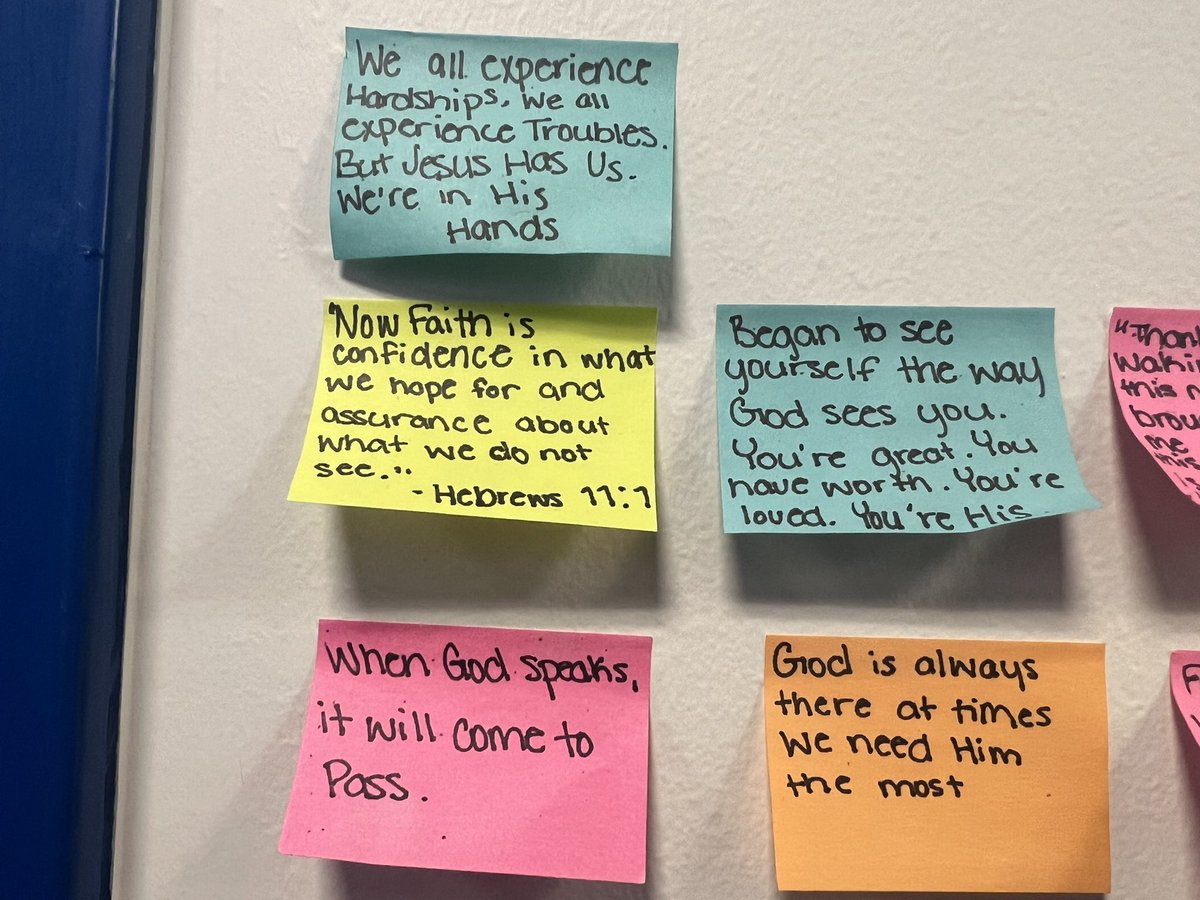 We all experience
Hardships. We all
experience Troubles.
But Jesus Has Us.
We're in His
Hands
"Now Faith is
confidence in what
we hope for and
assurance about
what we do not
see."
- Hebrews 11:1
Began to see
yourself the way
God sees you.
You're great. You
have worth. You're
loved. You're His.
this
me
this
When God speaks,
it will come to
Pass.
God is always
there at times
we need Him
the most